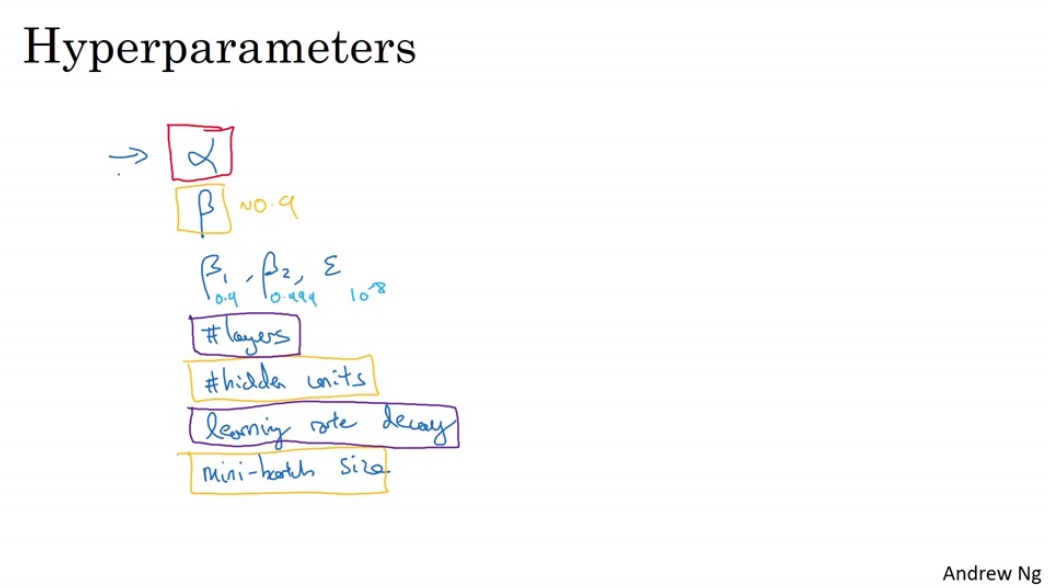 Hyperparameters
→ α
β ~0.9
β₁, β₂, ε
0.9 0.999 10⁻⁸
#layers
#hidden units
learning rate decay
mini-batch size
Andrew Ng